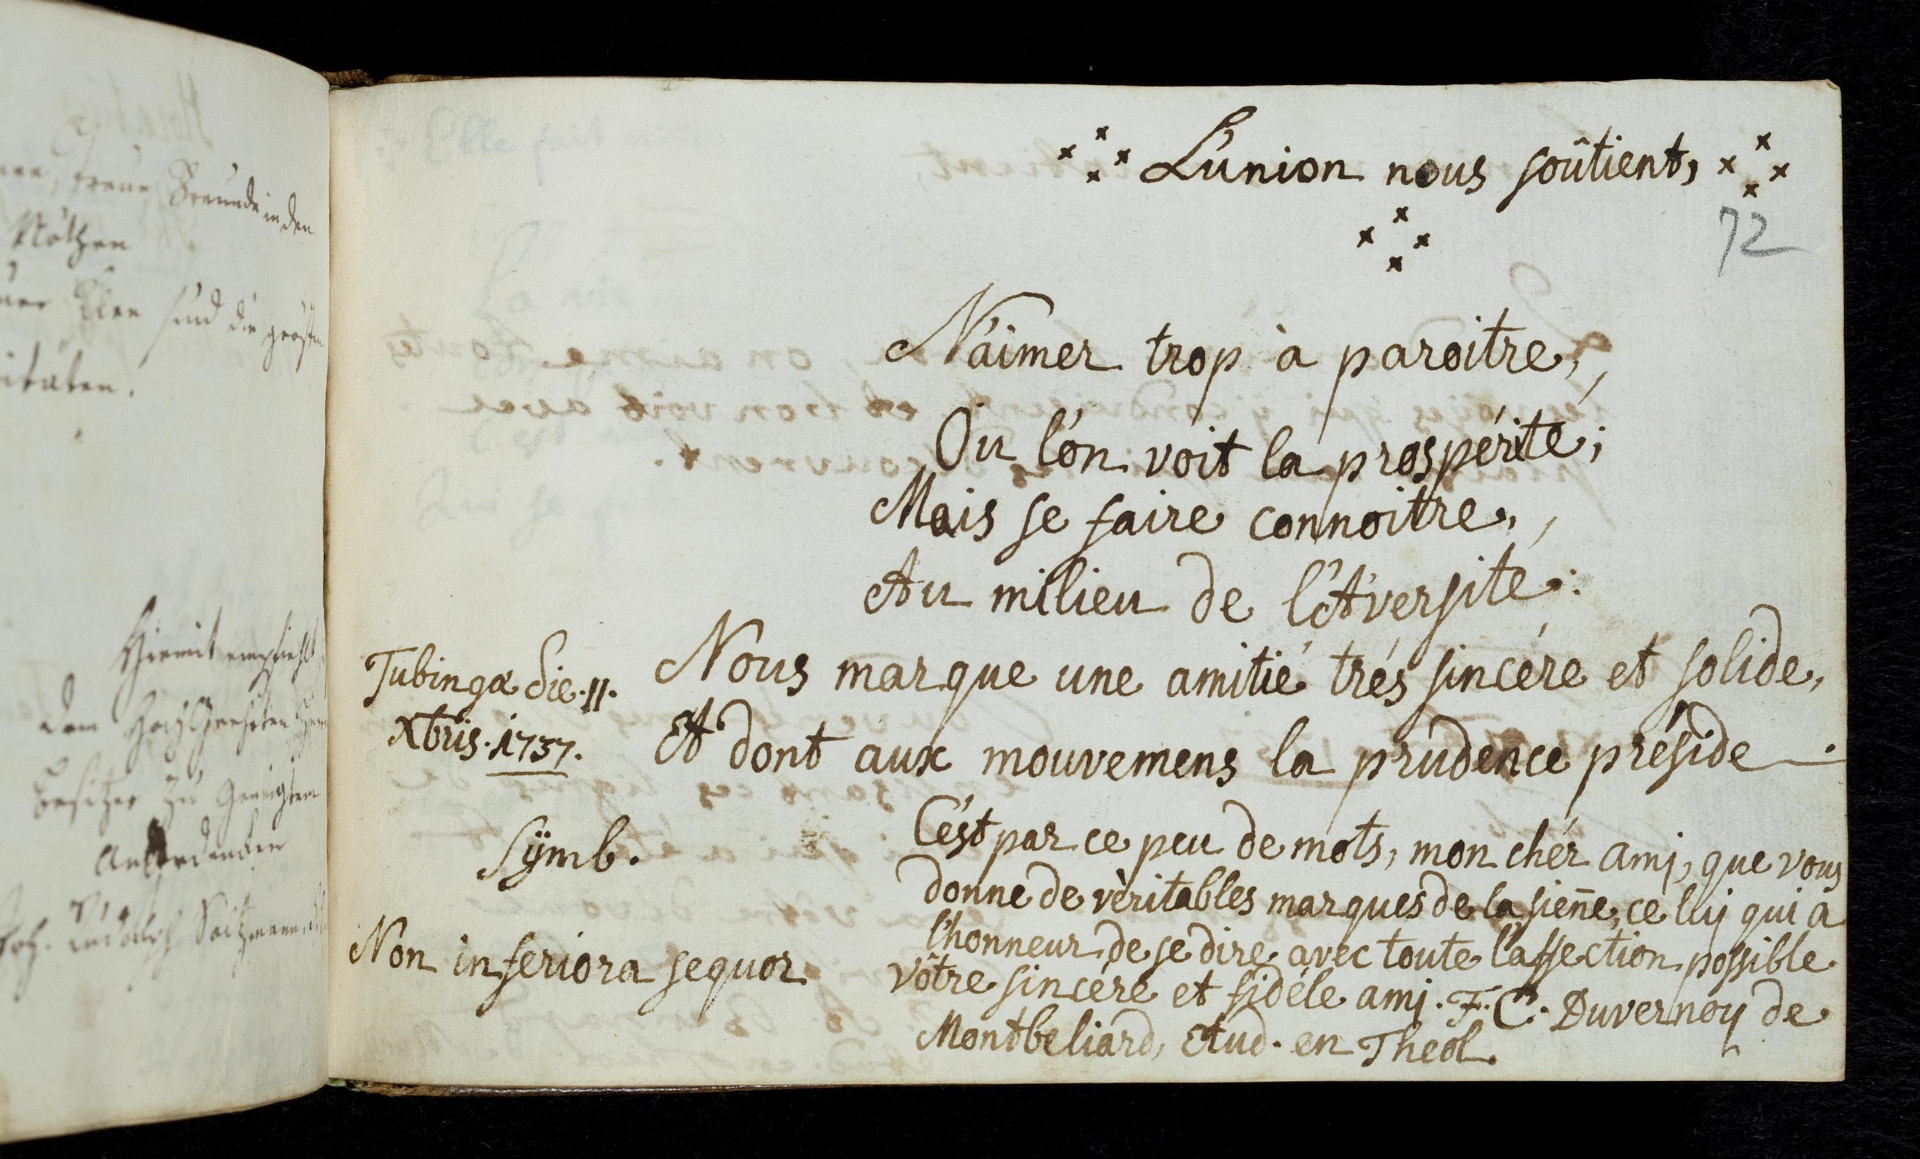 nen, treue Freunde in den
Nöthen
sind die größten
itäten.
Hiemit empfiehlt
dem HochgeEhrten Herrn
besitzer zu Geneigtem
Andencken
L'union nous soûtient,
72
N'aimer trop à paroitre,
Ou l'on voit la prospérité;
Mais se faire connoitre,
Au milieu de l'Aversité:
Nous marque une amitié trés sincére et solide,
Et dont aux mouvemens la prudence préside.
Tubingæ die. 11.
Xbris. 1737.
Sÿmb.
Non inferiora sequor
C'est par ce peu de mots, mon chér ami, que vous
donne de vèritables marques de la sien̄e, ce luj qui a
l'honneur de se dire avec toute l'affection possible
vôtre sincére et fidéle amj. F. C. Duvernoy de
Montbeliard, Etud. en Theol.